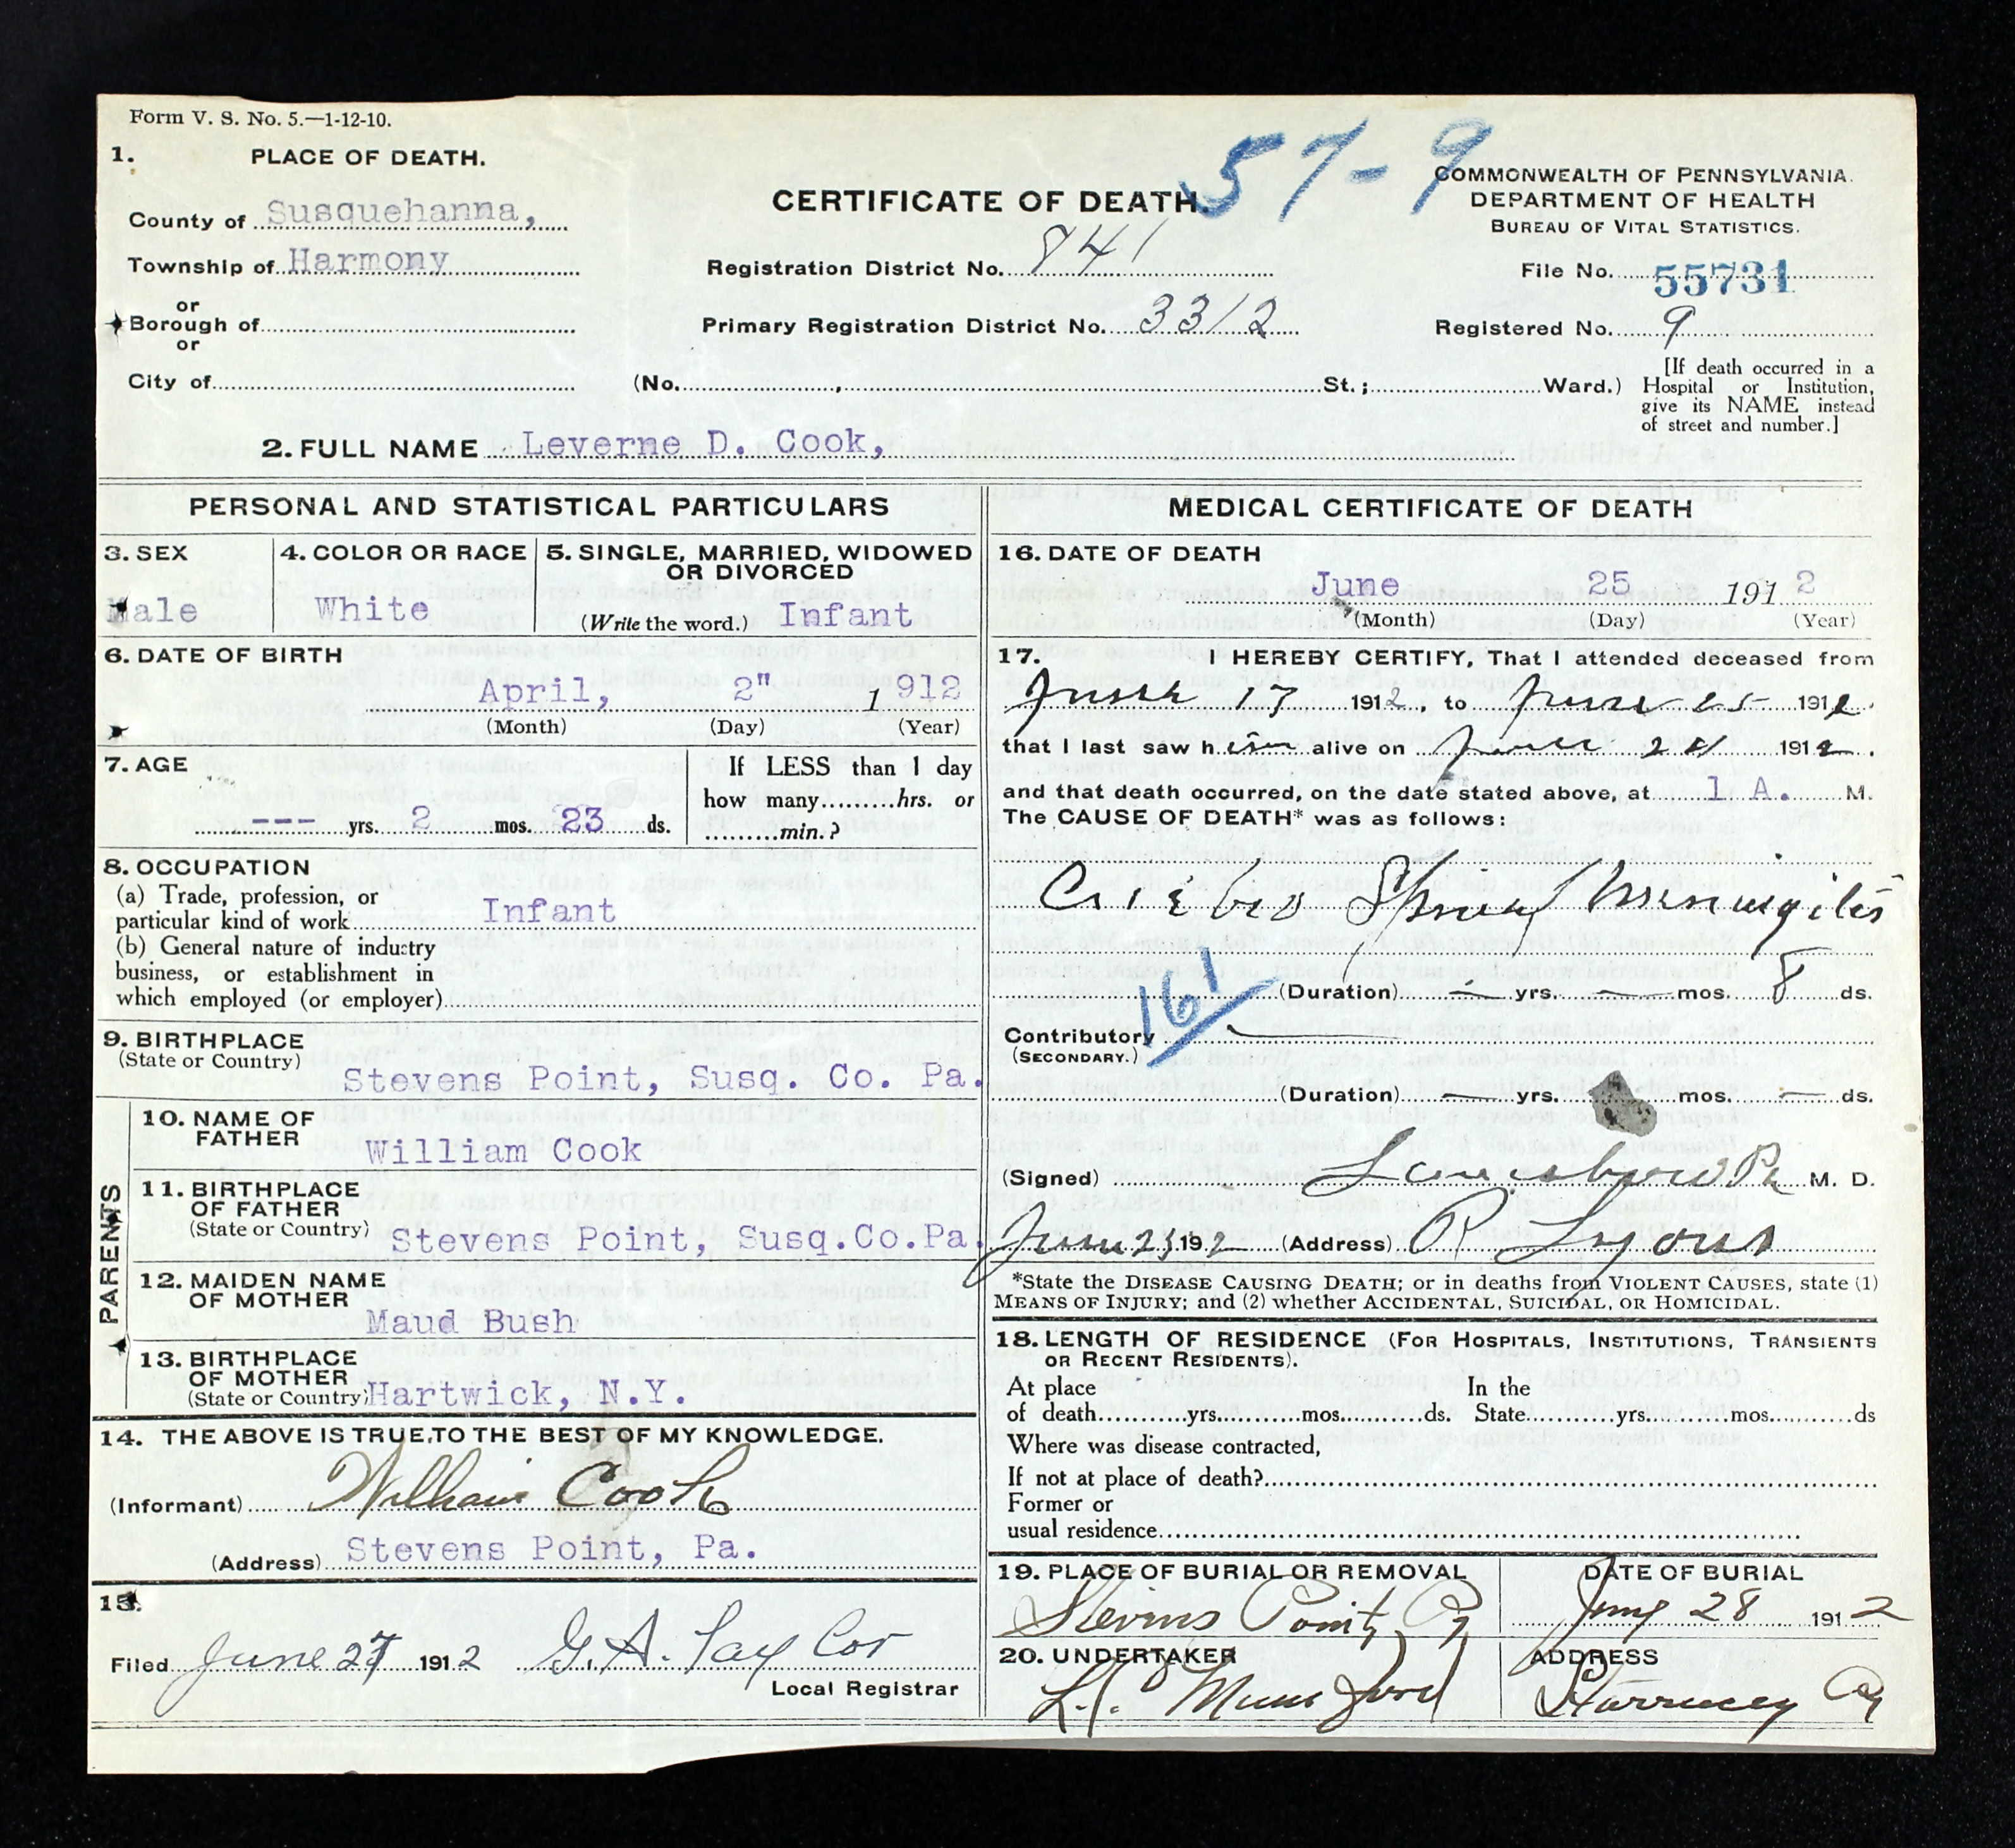 Form V. S. No. 5.—1-12-10.
1. PLACE OF DEATH.
County of Susquehanna,
Township of Harmony
or
Borough of
or
City of
CERTIFICATE OF DEATH.
57-9
Registration District No. 841
Primary Registration District No. 3312
(No. , St.; Ward.)
COMMONWEALTH OF PENNSYLVANIA.
DEPARTMENT OF HEALTH
BUREAU OF VITAL STATISTICS.
File No. 55731
Registered No. 9
[If death occurred in a
Hospital or Institution,
give its NAME instead
of street and number.]
2. FULL NAME Leverne D. Cook,
PERSONAL AND STATISTICAL PARTICULARS
3. SEX
Male
4. COLOR OR RACE
White
5. SINGLE, MARRIED, WIDOWED
OR DIVORCED
(Write the word.) Infant
6. DATE OF BIRTH
April, 2" 1 912
(Month) (Day) (Year)
7. AGE
--- yrs. 2 mos. 23 ds.
If LESS than 1 day
how many hrs. or
min.?
8. OCCUPATION
(a) Trade, profession, or
particular kind of work Infant
(b) General nature of industry
business, or establishment in
which employed (or employer)
9. BIRTHPLACE
(State or Country)
Stevens Point, Susq. Co. Pa.
PARENTS
10. NAME OF
FATHER
William Cook
11. BIRTHPLACE
OF FATHER
(State or Country) Stevens Point, Susq.Co.Pa.
12. MAIDEN NAME
OF MOTHER
Maud Bush
13. BIRTHPLACE
OF MOTHER
(State or Country) Hartwick, N.Y.
14. THE ABOVE IS TRUE, TO THE BEST OF MY KNOWLEDGE.
(Informant) William Cook
(Address) Stevens Point, Pa.
15.
Filed June 27 1912 G. A. Taylor
Local Registrar
MEDICAL CERTIFICATE OF DEATH
16. DATE OF DEATH
June 25 1912
(Month) (Day) (Year)
17. I HEREBY CERTIFY, That I attended deceased from
June 17 1912, to June 25 1912.
that I last saw him alive on June 24 1912.
and that death occurred, on the date stated above, at 1 A. M.
The CAUSE OF DEATH* was as follows:
Cerebro Spinal Meningitis
(Duration) — yrs. — mos. 8 ds.
161
Contributory
(SECONDARY.)
(Duration) — yrs. mos. — ds.
(Signed) Lanesboro Pa M. D.
June 25 1912 (Address) Lyons
*State the DISEASE CAUSING DEATH; or in deaths from VIOLENT CAUSES, state (1)
MEANS OF INJURY; and (2) whether ACCIDENTAL, SUICIDAL, OR HOMICIDAL.
18. LENGTH OF RESIDENCE (FOR HOSPITALS, INSTITUTIONS, TRANSIENTS
OR RECENT RESIDENTS).
At place In the
of death yrs. mos. ds. State yrs. mos. ds
Where was disease contracted,
If not at place of death?
Former or
usual residence
19. PLACE OF BURIAL OR REMOVAL
Stevens Point, Pa
DATE OF BURIAL
June 28 1912
20. UNDERTAKER
Mumford
ADDRESS
Starrucca Pa